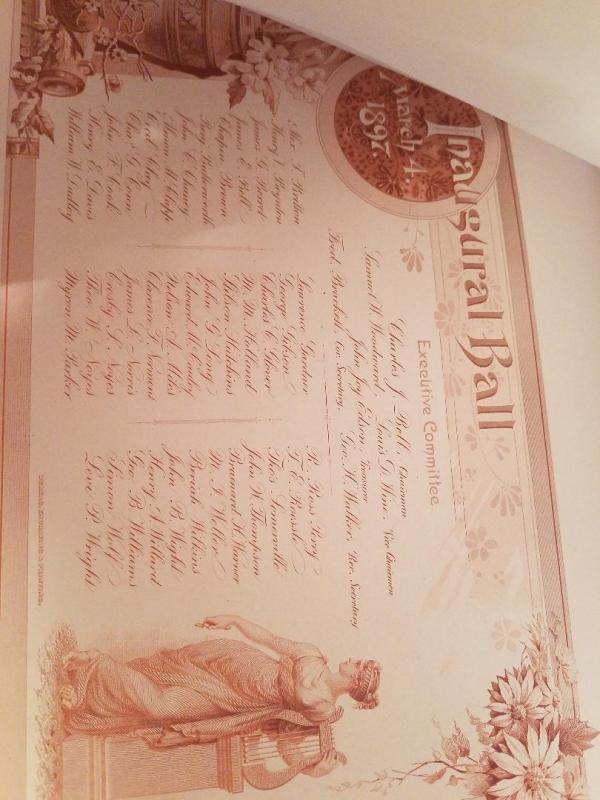 Inaugural Ball
March 4,
1897.
Executive Committee
Charles J. Bell, Chairman
Samuel W. Woodward, Louis D. Wine, Vice Chairmen
John Joy Edson, Treasurer
Fred. Brackett, Cor. Secretary. Geo. H. Walker, Rec. Secretary
Alex. T. Britton
Henry V. Boynton
James G. Berret
James E. Bell
Chapin Brown
Benj. Butterworth
John C. Chaney
Cecil Clay
John T. Cook
Henry E. Davis
William W. Dudley
Lawrence Gardner
George Gibson
Charles C. Glover
W. M. Holland
Stilson Hutchins
John G. Long
Edward McCauley
Nelson A. Miles
Clarence F. Norment
James L. Norris
Crosby S. Noyes
Theo. W. Noyes
Myron M. Parker
R. Ross Perry
T. E. Roessle
Thos. Somerville
John W. Thompson
Brainard H. Warner
M. I. Weller
Beriah Wilkins
John B. Wight
Henry A. Willard
Geo. B. Williams
Simon Wolf
Levi P. Wright